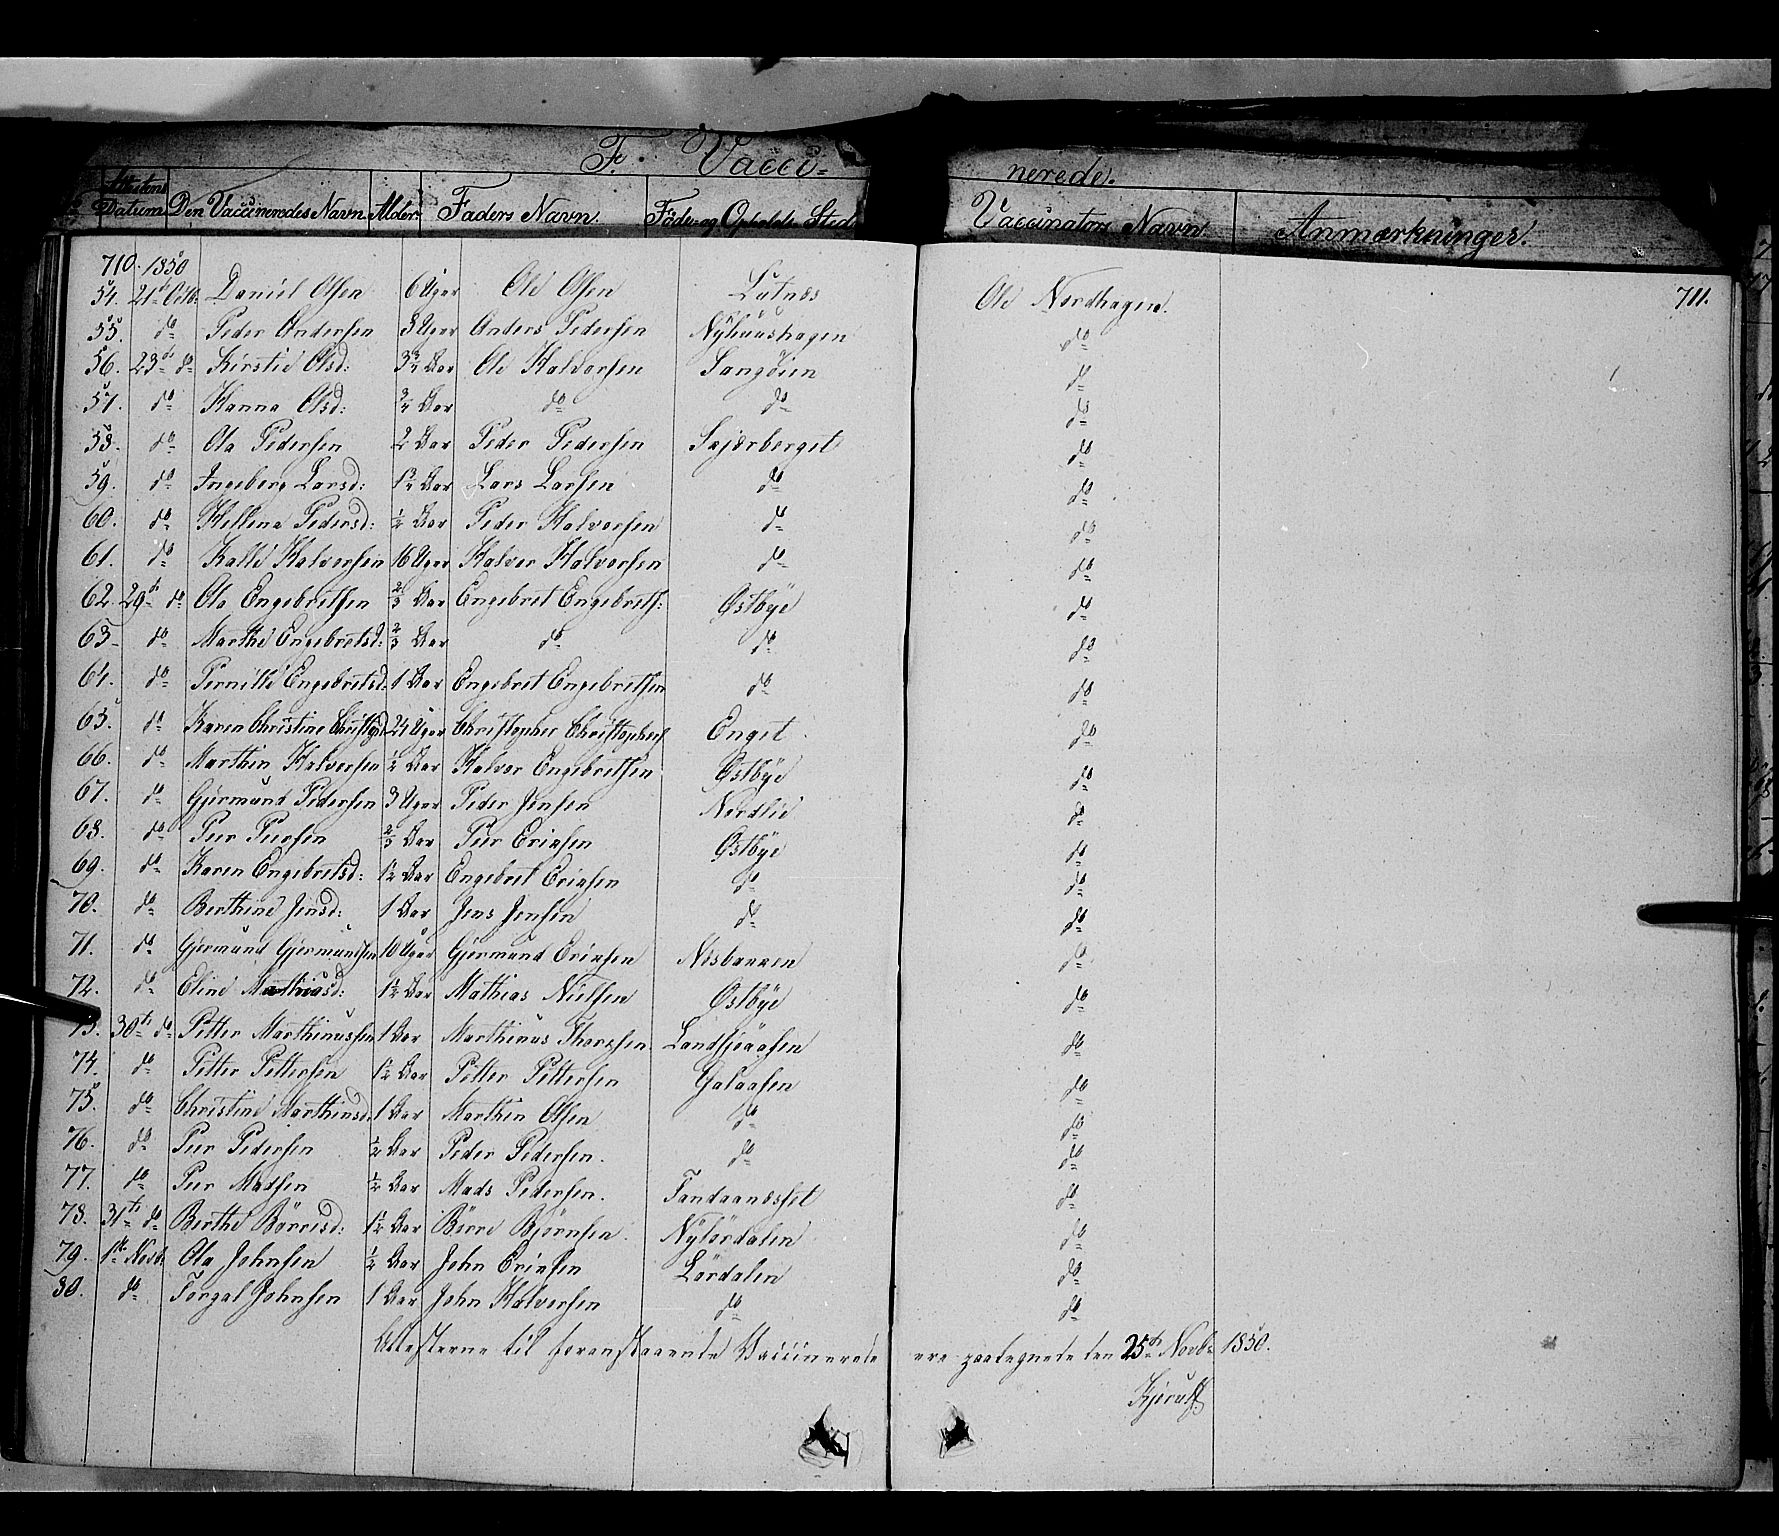 F. Vacci= nerede.
Attestens Datum Den Vaccineredes Navn Alder Faders Navn Føde- og Opholds Sted Vaccinators Navn Anmærkninger.
710. 1850 711.
54. 21d Octb. Daniel Olsen 6 Uger Ole Olsen Lutnæs Ole Nordhagen.
55. do Peder Andersen 3 Uger Anders Pedersen Nyhuushagen do
56. 23d do Kirstie Olsd: Aar Ole Halvorsen Sangöien do
57. do Hanna Olsd: Aar do do do
58. do Ola Pedersen 2 Aar Peder Pedersen Skjærberget do
59. do Ingeborg Larsd: 1½ Aar Lars Larsen do do
60. do Hellena Pedersd: ½ Aar Peder Halvorsen do do
61. do Kalle Halvorsen 16 Uger Halvor Halvorsen do do
62. 29d do Ola Engebretsen ⅔ Aar Engebret Engebrets: Østbye do
63. do Marthe Engebretsd: ⅔ Aar do do do
64. do Pernille Engebretsd. 1 Aar Engebret Engebretsen do do
65. do Karen Christine 24 Uger Christopher Christophers Enget do
66. do Marthin Halvorsen ½ Aar Halvor Engebretsen Østbye do
67. do Gjermund Pedersen 3 Uger Peder Jensen Nordlie do
68. do Peer Peersen ⅔ Aar Peer Eriksen Østbye do
69. do Karen Engebretsd: 1½ Aar Engebret Eriksen do do
70. do Berthine Jensd: 1 Aar Jens Jensen do do
71. do Gjermund Gjermundsen 10 Uger Gjermund Eriksen Næsbakken do
72. do Eline Mathiasd: 1½ Aar Mathias Nielsen Østbye do
73. 30te do Petter Marthinussen 1 Aar Marthinus Thorssen Landsjøaasen do
74. do Petter Pettersen 1½ Aar Petter Pettersen Galaasen do
75. do Christine Marthinsd. 1 Aar Marthin Olsen do do
76. do Peer Pedersen ½ Aar Peder Pedersen. do do
77. do Peer Madsen ½ Aar Mads Pedersen. Tandaanæsset do
78. 31te do Berthe Börresd: 1½ Aar Börre Björnsen. Nylördalen do
79. 1ste Novb. Ola Johnsen ½ Aar John Eriksen Lördalen do
80. do Torgal Johnsen 1 Aar John Halvorsen do do
Attesterne til foranstaaende Vaccinerede ere paategnede den 25de Novb. 1850.
Kjerulf